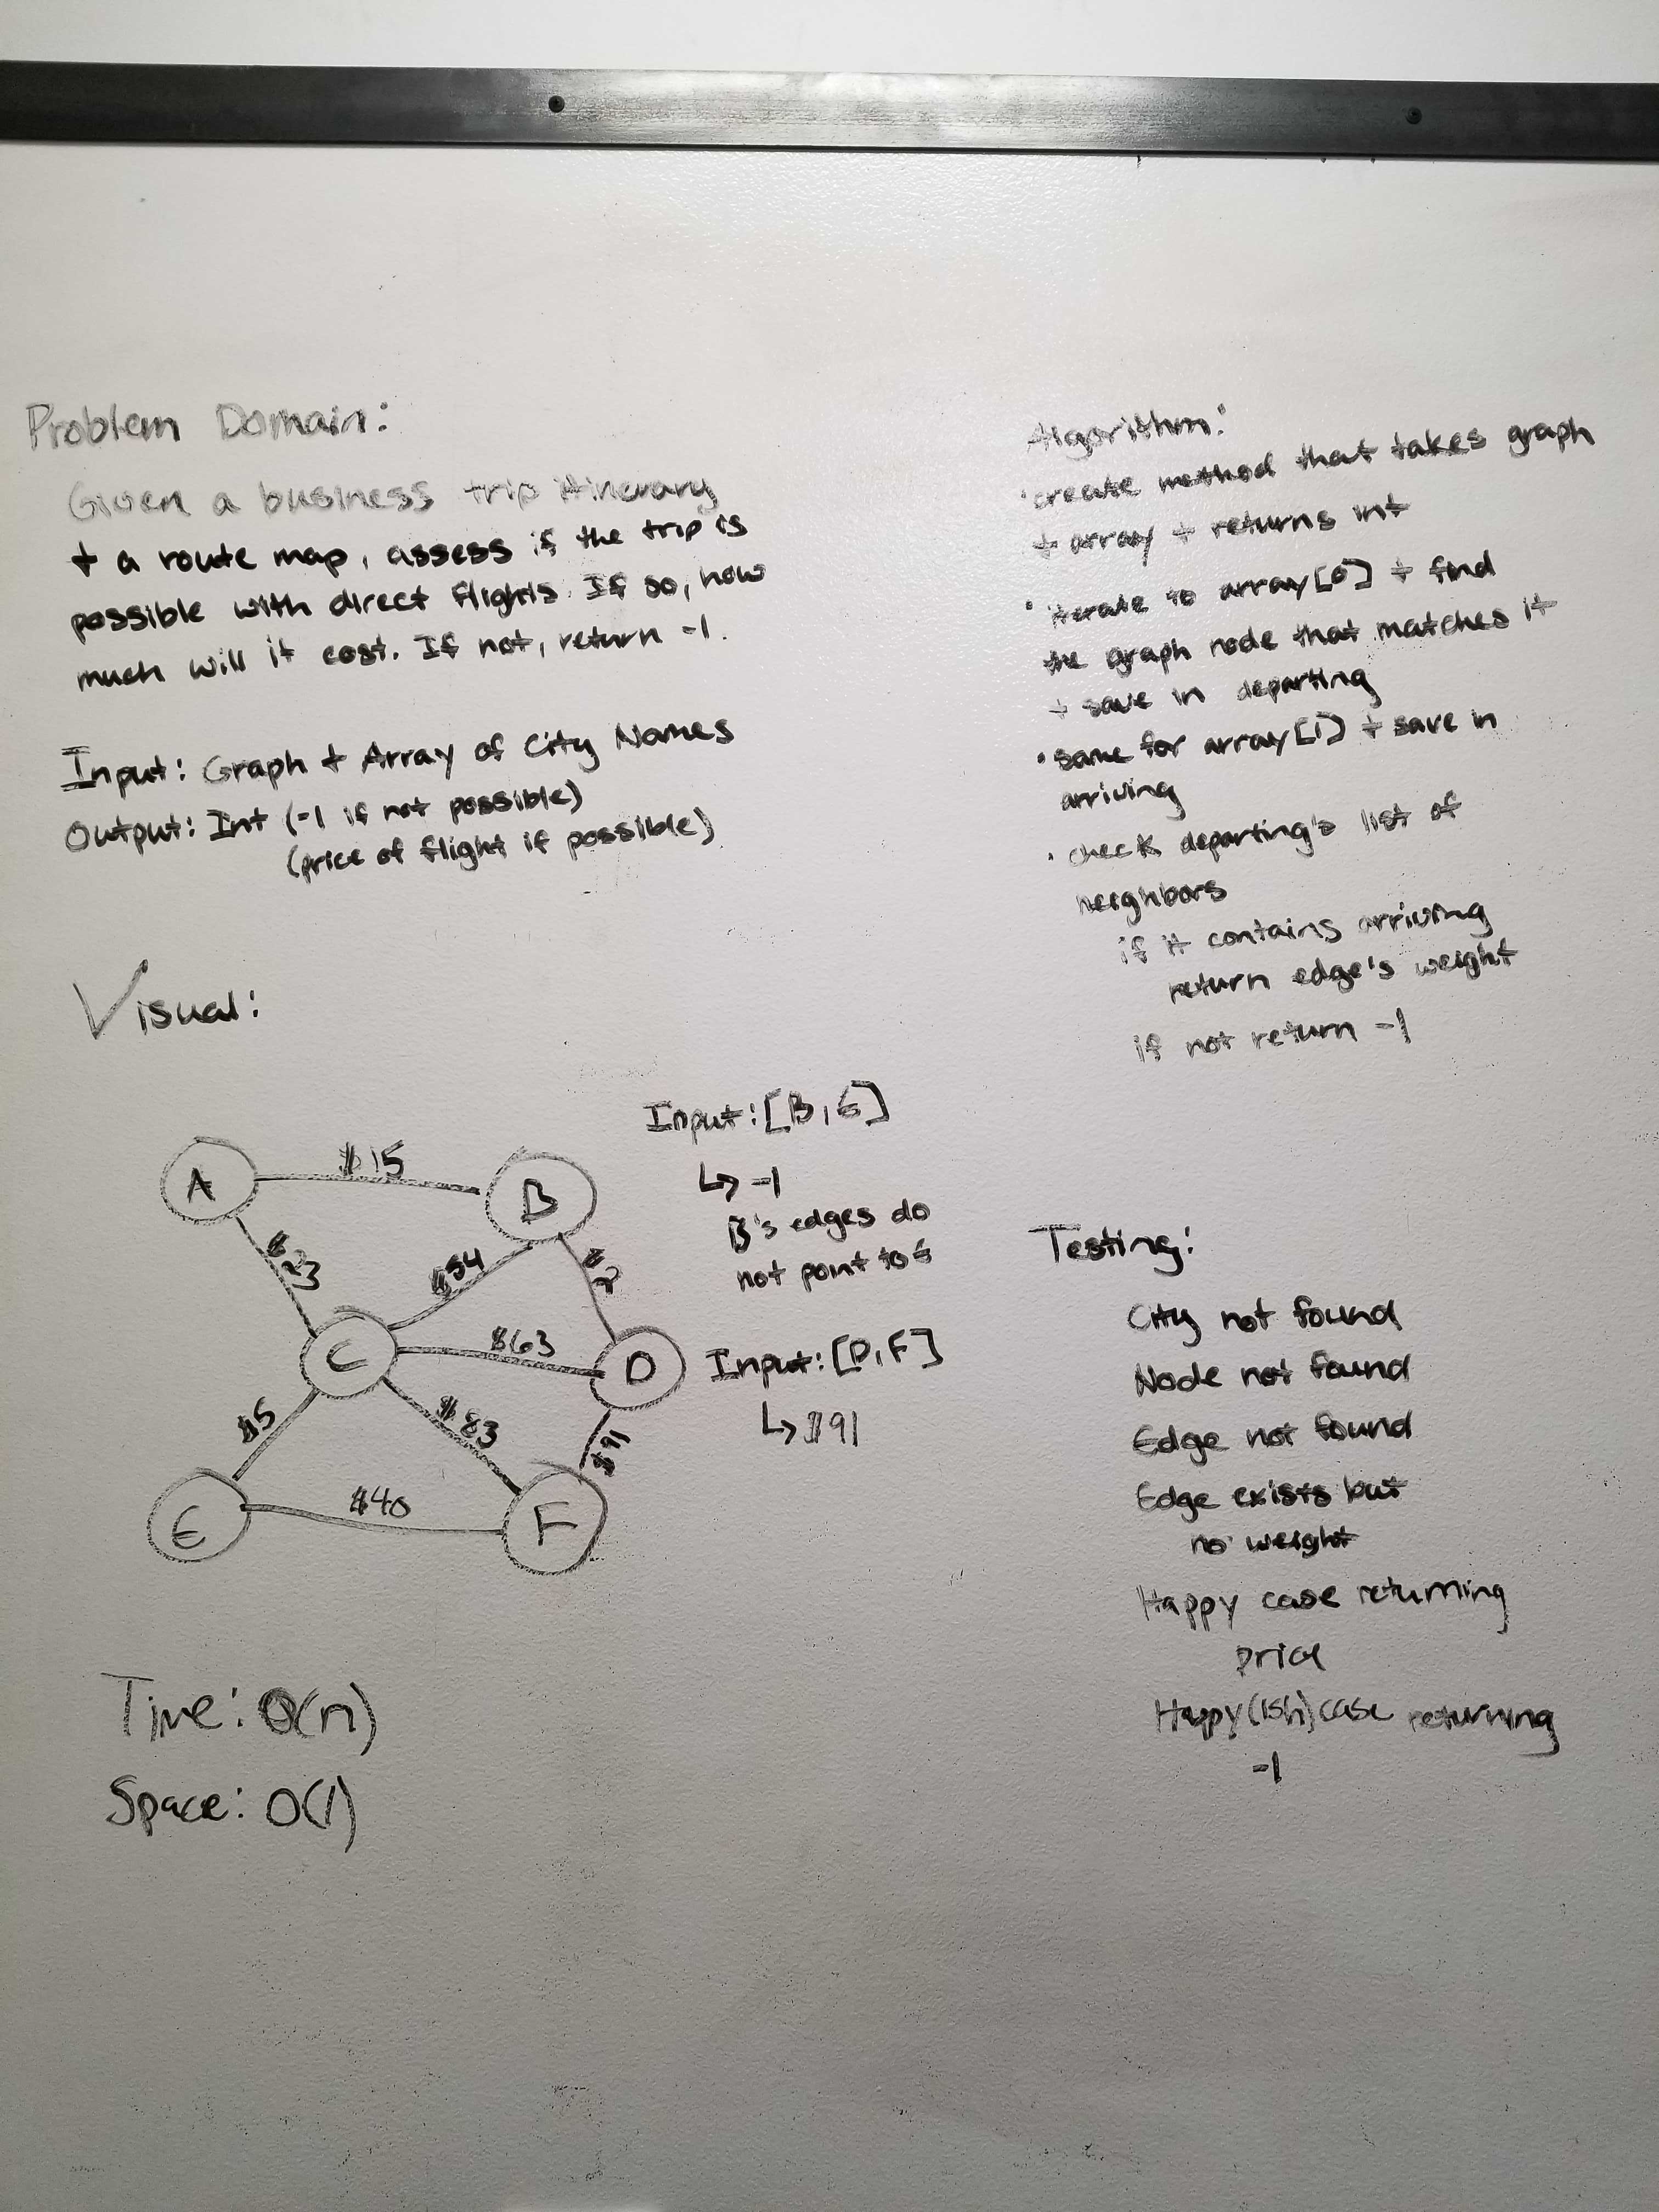 Problem Domain:
Given a business trip itinerary
+ a route map, assess if the trip is
possible with direct flights. If so, how
much will it cost. If not, return -1.
Input: Graph + Array of City Names
Output: Int (-1 if not possible)
(price of flight if possible)
Visual:
A
$15
B
$23
$54
$2
C
$63
D
$5
$83
$91
E
$40
F
Input: [B, E]
↳ -1
B's edges do
not point to E
Input: [D, F]
↳ $91
Time: O(n)
Space: O(1)
Algorithm:
• create method that takes graph
+ array + returns int
• iterate to array[0] + find
the graph node that matches it
+ save in departing
• same for array[1] + save in
arriving
• check departing's list of
neighbors
if it contains arriving
return edge's weight
if not return -1
Testing:
City not found
Node not found
Edge not found
Edge exists but
no weight
Happy case returning
price
Happy(ish) case returning
-1